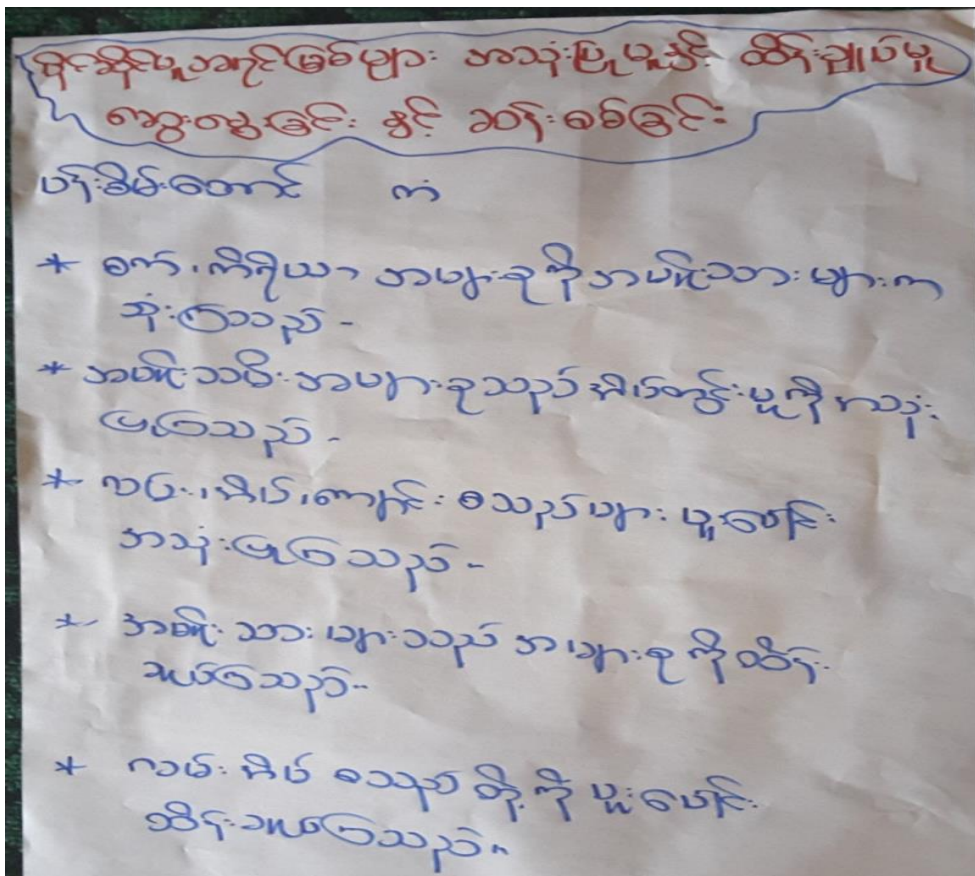 ပိုင်ဆိုင်မှုအရင်းအမြစ်များ အသုံးပြုမှုနှင့် ထိန်းချုပ်မှု
ဆွေးနွေးခြင်း နှင့် ဆန်းစစ်ခြင်း
ပန်းခိမ်းတောင် ကံ
* စက်၊ ကိရိယာ အများစုကိုအမျိုးသားများက
သုံးကြသည်-
* အမျိုးသမီးအများစုသည် အိမ်တွင်းမှုကိုအသုံး
ပြုကြသည်-
* လမ်း၊ အိမ်၊ ကျောင်း စသည်များ ပူးပေါင်း
အသုံးပြုကြသည်-
* အမျိုးသားများသည် အများစုကိုထိန်း
ချုပ်ကြသည်-
* လမ်း အိမ် စသည်တို့ကို ပူးပေါင်း
ထိန်းချုပ်ကြသည်။